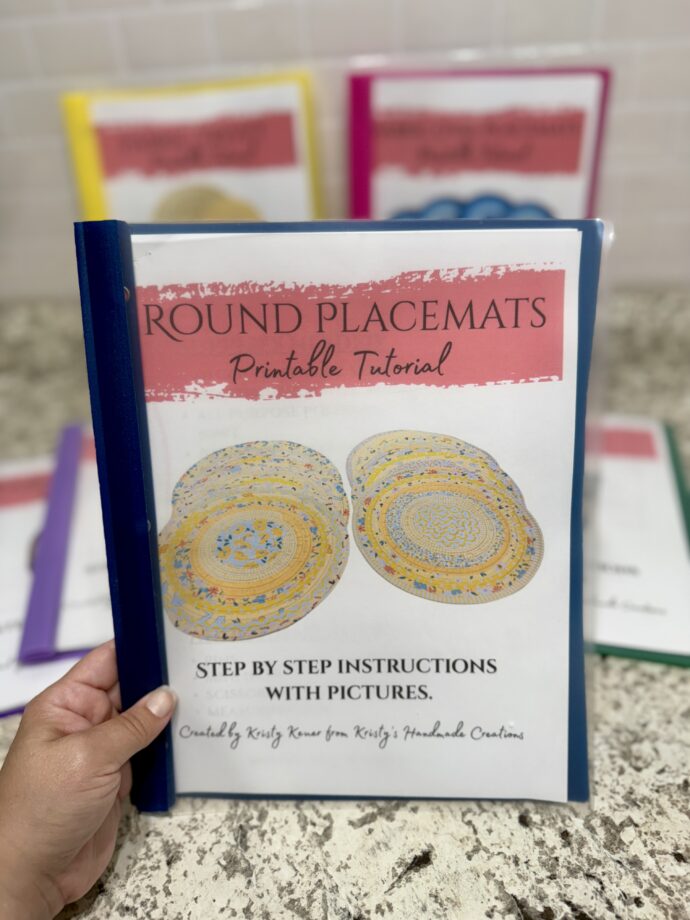 Round Placemats
Printable Tutorial
Step by step instructions
with pictures.
Created by Kristy Kener from Kristy's Handmade Creations